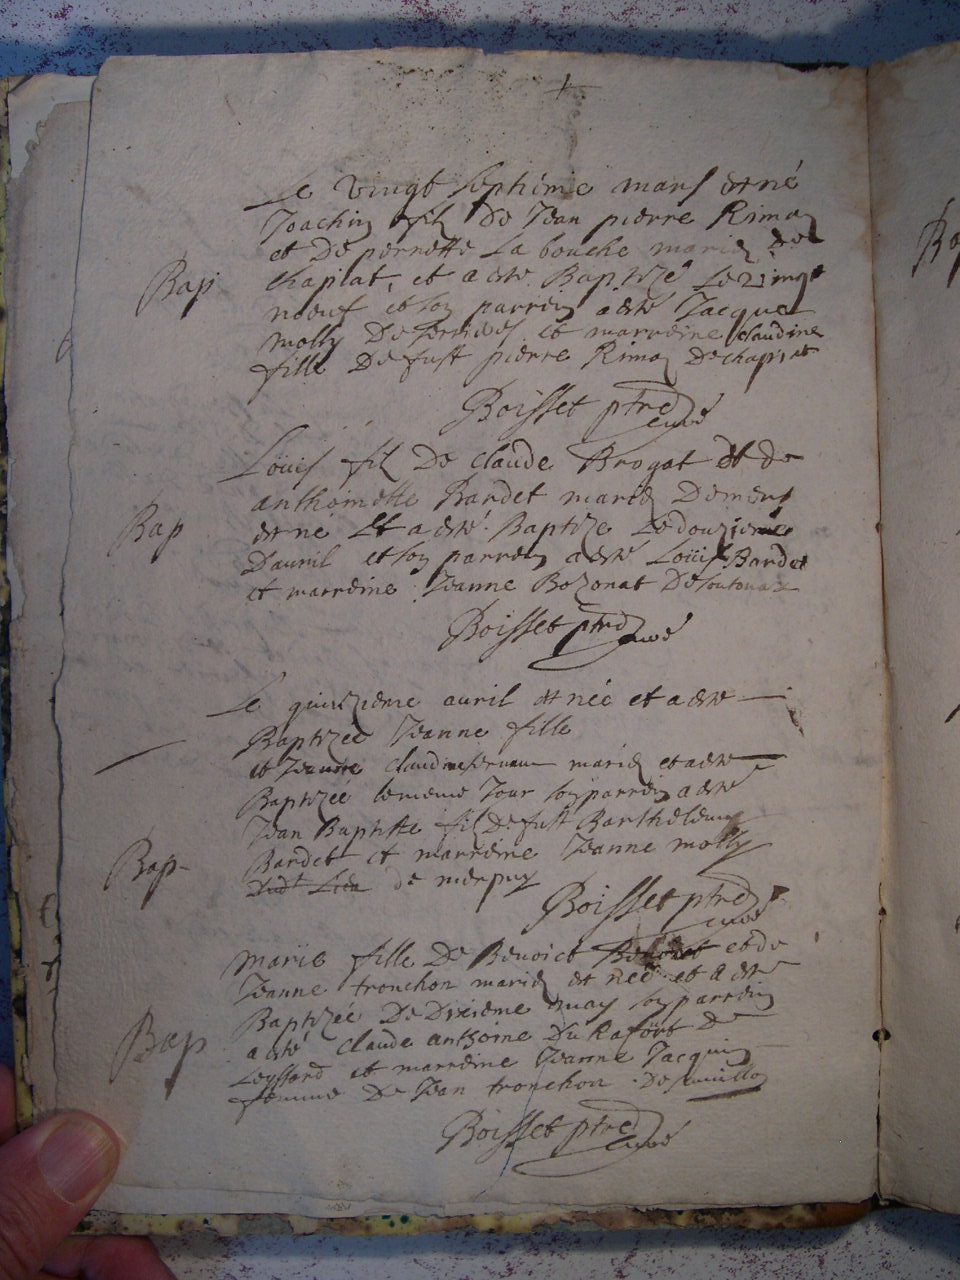 Le vingt septieme mars est né
Joachin fils de Jean pierre Rimoz
et de pernette La bouche mariez de
Bap chaplat, et a esté Baptizé Le vingt
noeuf et son parrein a esté Jacque
molly de et marreine claudine
fille de fust pierre Rimoz de chaplat
Boisset ptre curé
Loüis filz de claude Brogat et de
anthoinette Bardet mariez
Bap est né et a esté Baptize Le douzieme
D'auril et son parrein a esté Loüis Bardet
et marreine Jeanne Bozonat de
Boisset ptre curé
Le quinzieme auril est née et a esté
Baptizée Jeanne fille
et Jeanne mariez et a esté
Baptizée le meme Jour son parrein a esté
Jean Baptiste filz de fust Barthelemy
Bap- Bardet et marreine Jeanne molly
de merpuy
Boisset ptre curé
marie fille De Benoict et de
Jeanne tronchon mariez est née et a esté
Baptizée De Dixieme may son parrein
Bap a esté claude anthoine Du Rafort de
Leyssard et marreine Jeanne Jacquin
femme De Jean tronchon
Boisset ptre curé